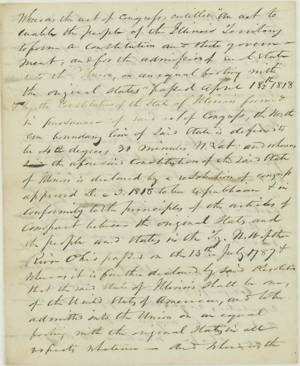 Whereas the act of Congress, entitled "An act to
enable the people of the Illinois Territory
to form a Constitution and State govern-
ment, and for the admission of such State
into the Union, on an equal footing with
the original States" passed April 18th 1818
by the Constitution of the State of Illinois formed
in pursuance of said act of Congress, the North
ern boundary line of said State is defined to
be 42 degrees, 30 minutes N. Lat. and whereas
the aforesaid Constitution of the said State
of Illinois is declared by a resolution of congress
approved Dec 3. 1818 to be republican & in
conformity to the principles of the articles of
Compact between the original States and
the people and States in the Ty. N.W. of the
River Ohio passed on the 13th July 1787 &
Whereas it is further declared by said Resolution
that the said State of Illinois shall be one,
of the United States of America, and to be
admitted into the Union on an equal
footing with the original States in all
respects whatever — And whereas the